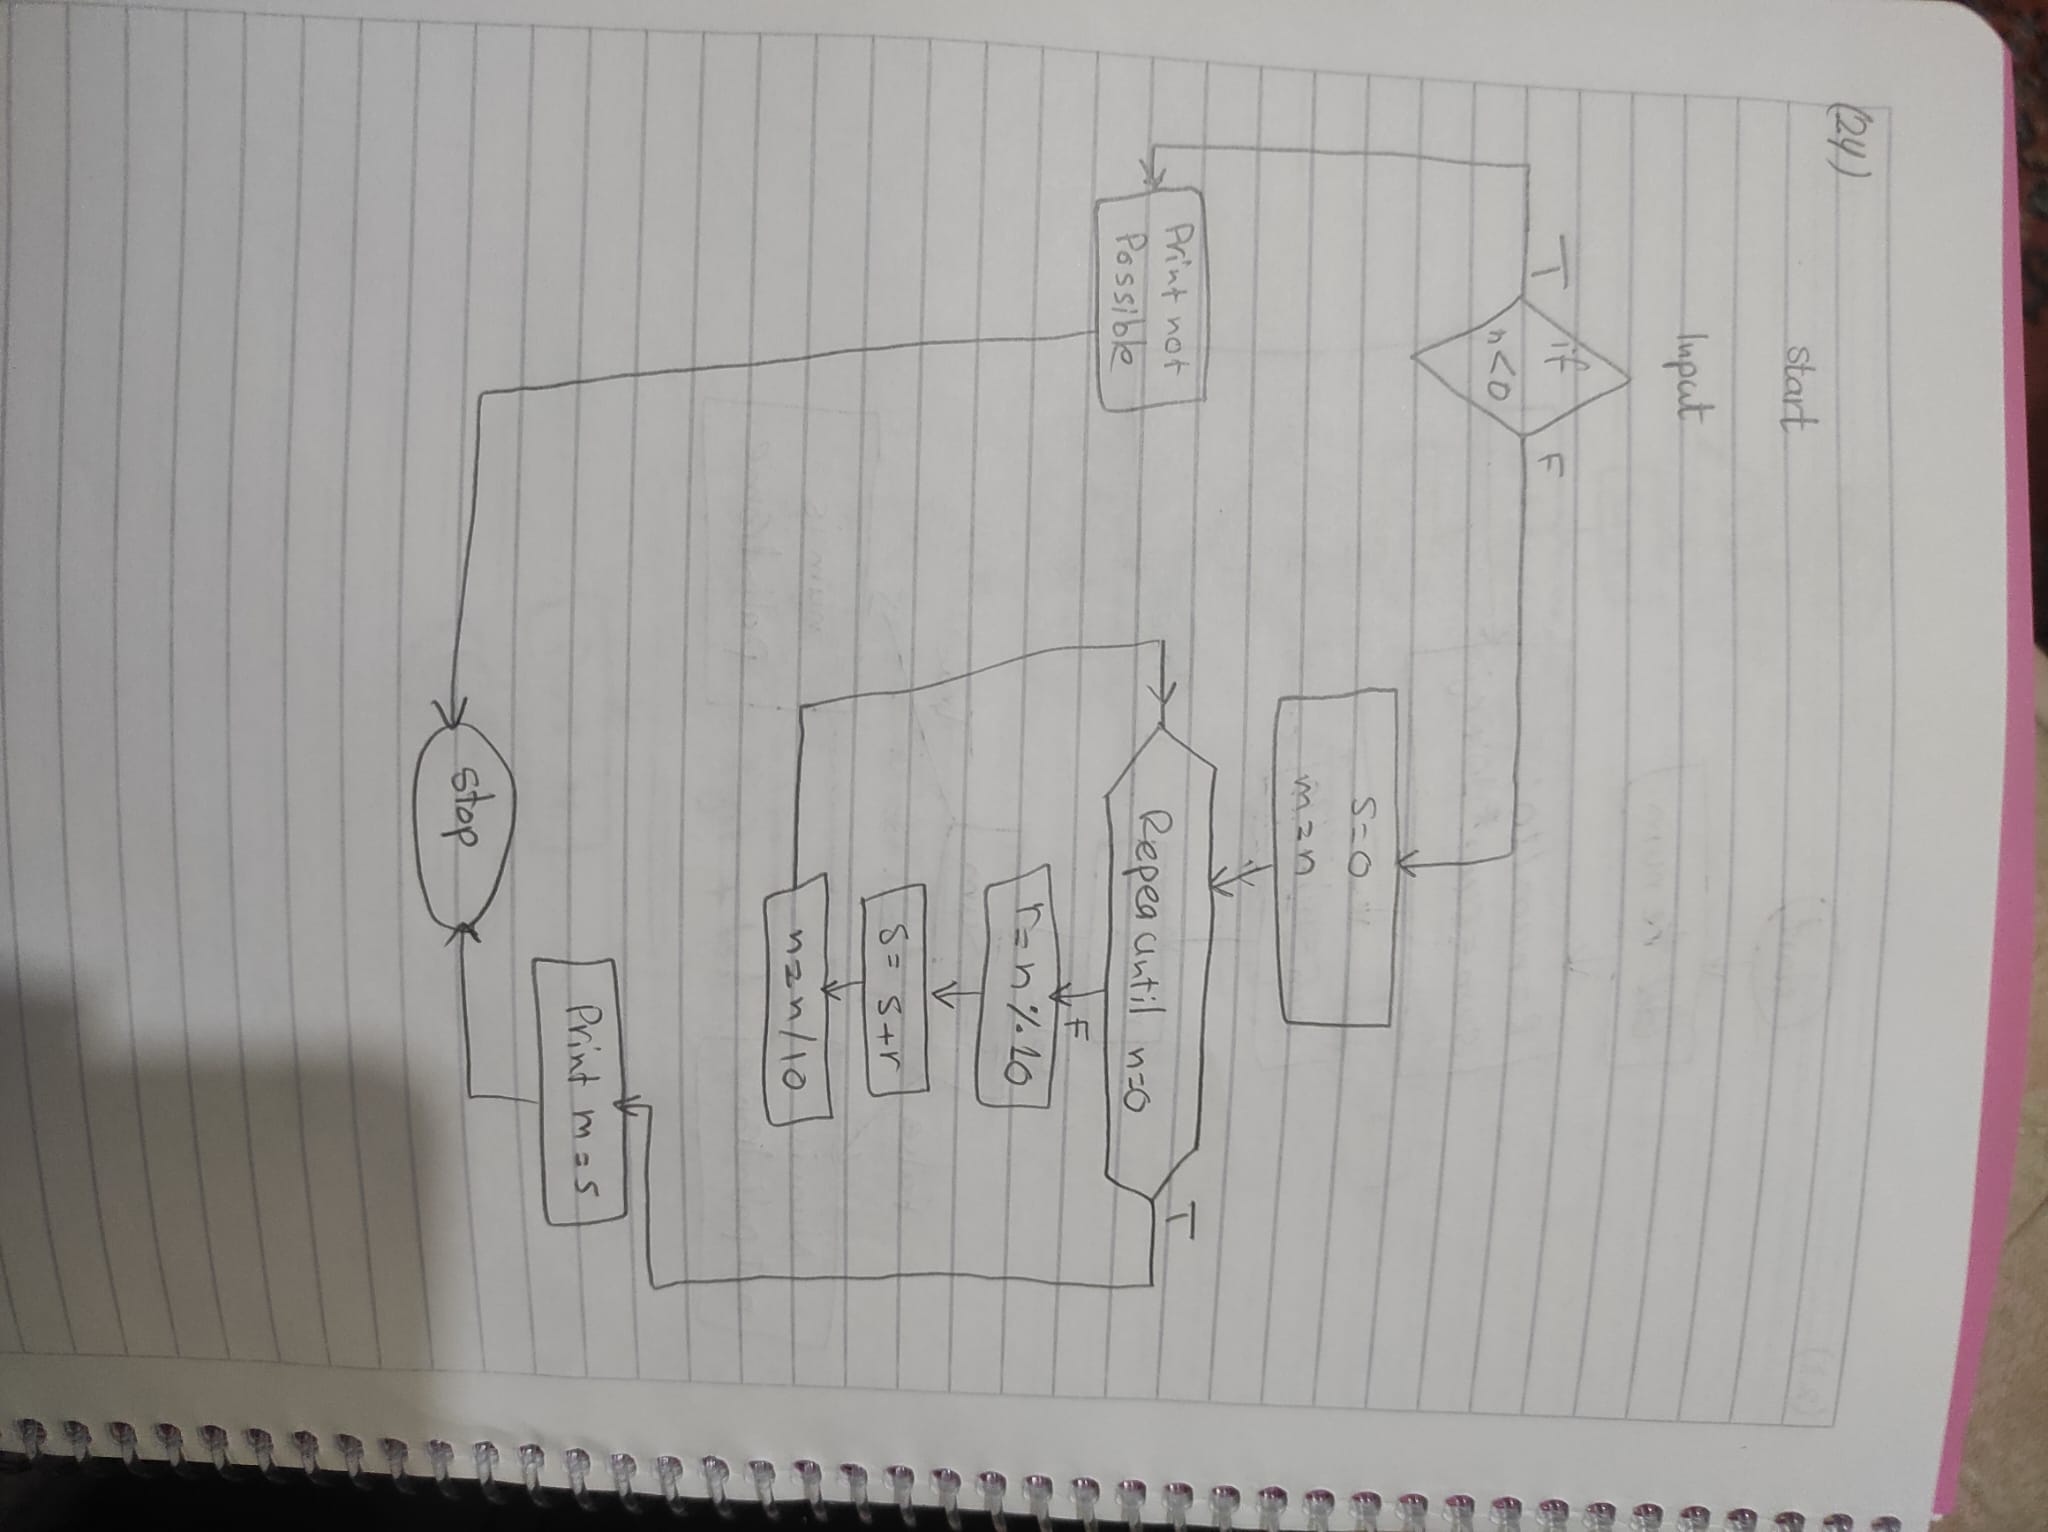 (24)
Start
Input
if
n<0
T
F
S=0
m=n
Print not
Possible
Repea until n=0
T
F
r=n%10
S= S+r
n=n/10
Print m=s
Stop